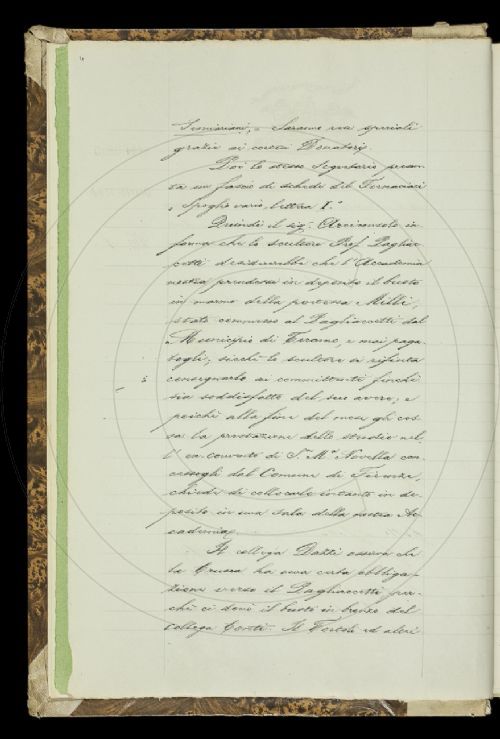 grazie ai cortesi Donatori.
Poi lo stesso Segretario presen-
ta un fascio di schede del Fornaciari
"Spoglio vario lettera I."
Quindi il sig. Arciconsolo in-
forma che lo scultore Prof. Pagliac-
cetti desidererebbe che l'Accademia
nostra prendesse in deposito il busto
in marmo della poetessa Milli,
stato commesso al Pagliaccetti dal
Municipio di Teramo, e mai paga-
togli; sicchè lo scultore si rifiuta
consegnarlo ai committenti finchè
sia soddisfatto del suo avere; e
poichè alla fine del mese gli ces-
sa la prestazione dello studio nel-
l'ex convento di S.ª M.ª Novella con-
cessogli dal Comune di Firenze,
chiede di collocarlo intanto in de-
posito in una sala della nostra Ac-
cademia.
Il collega Dazzi osserva che
la Crusca ha una certa obbliga-
zione verso il Pagliaccetti per-
chè ci donò il busto in bronzo del
collega Conti. Il Tortoli ed altri